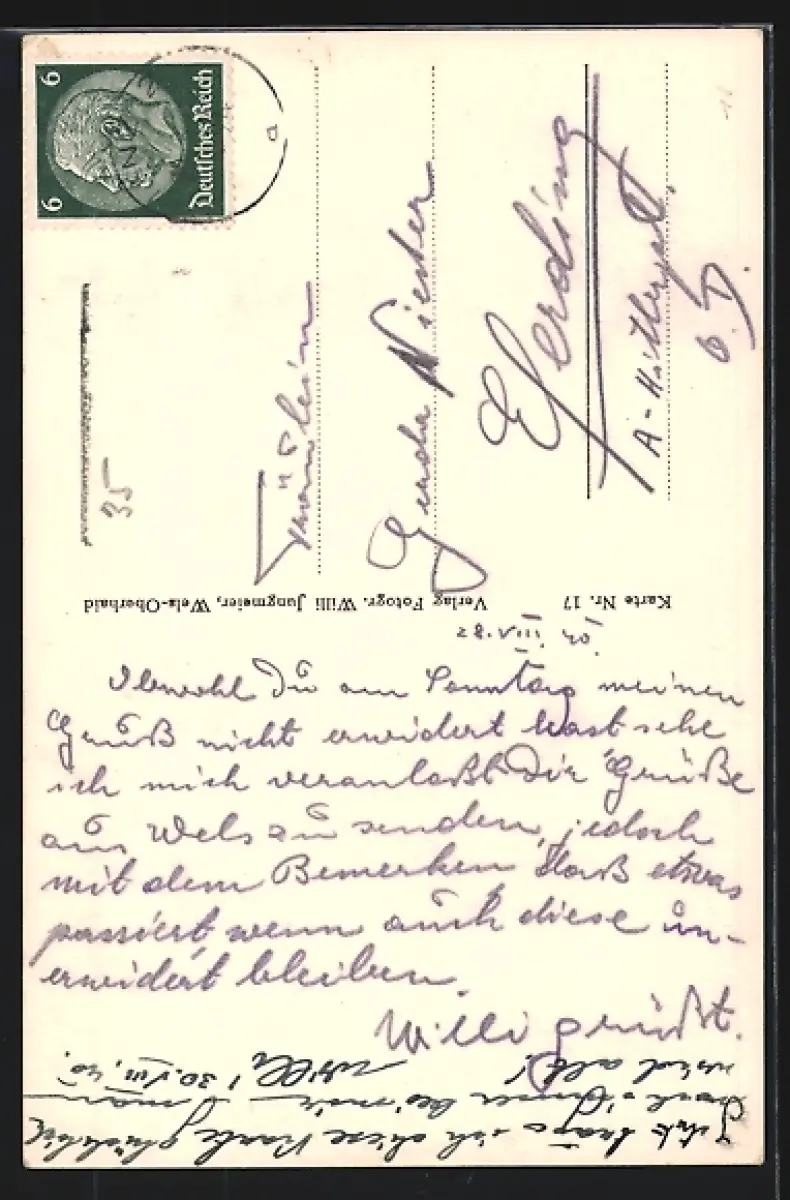 Deutsches Reich
6 6
35
Fräulein
Gerda Niester
Eferding
A-Hitlerpl.
O. D.
Karte Nr. 17
Verlag Fotogr. Willi Jungmeier, Wels-Oberhaid
Obwohl Du am Sonntag meinen
Gruß nicht erwidert hast sehe
ich mich veranlaßt Dir Grüße
aus Wels zu senden, jedoch
mit dem Bemerken daß etwas
passiert wenn auch diese un-
erwidert bleiben.
Willi grüßt.
ich diese Karte glücklich
bei mir man
wird alt!
Willi 30. VIII. 40.